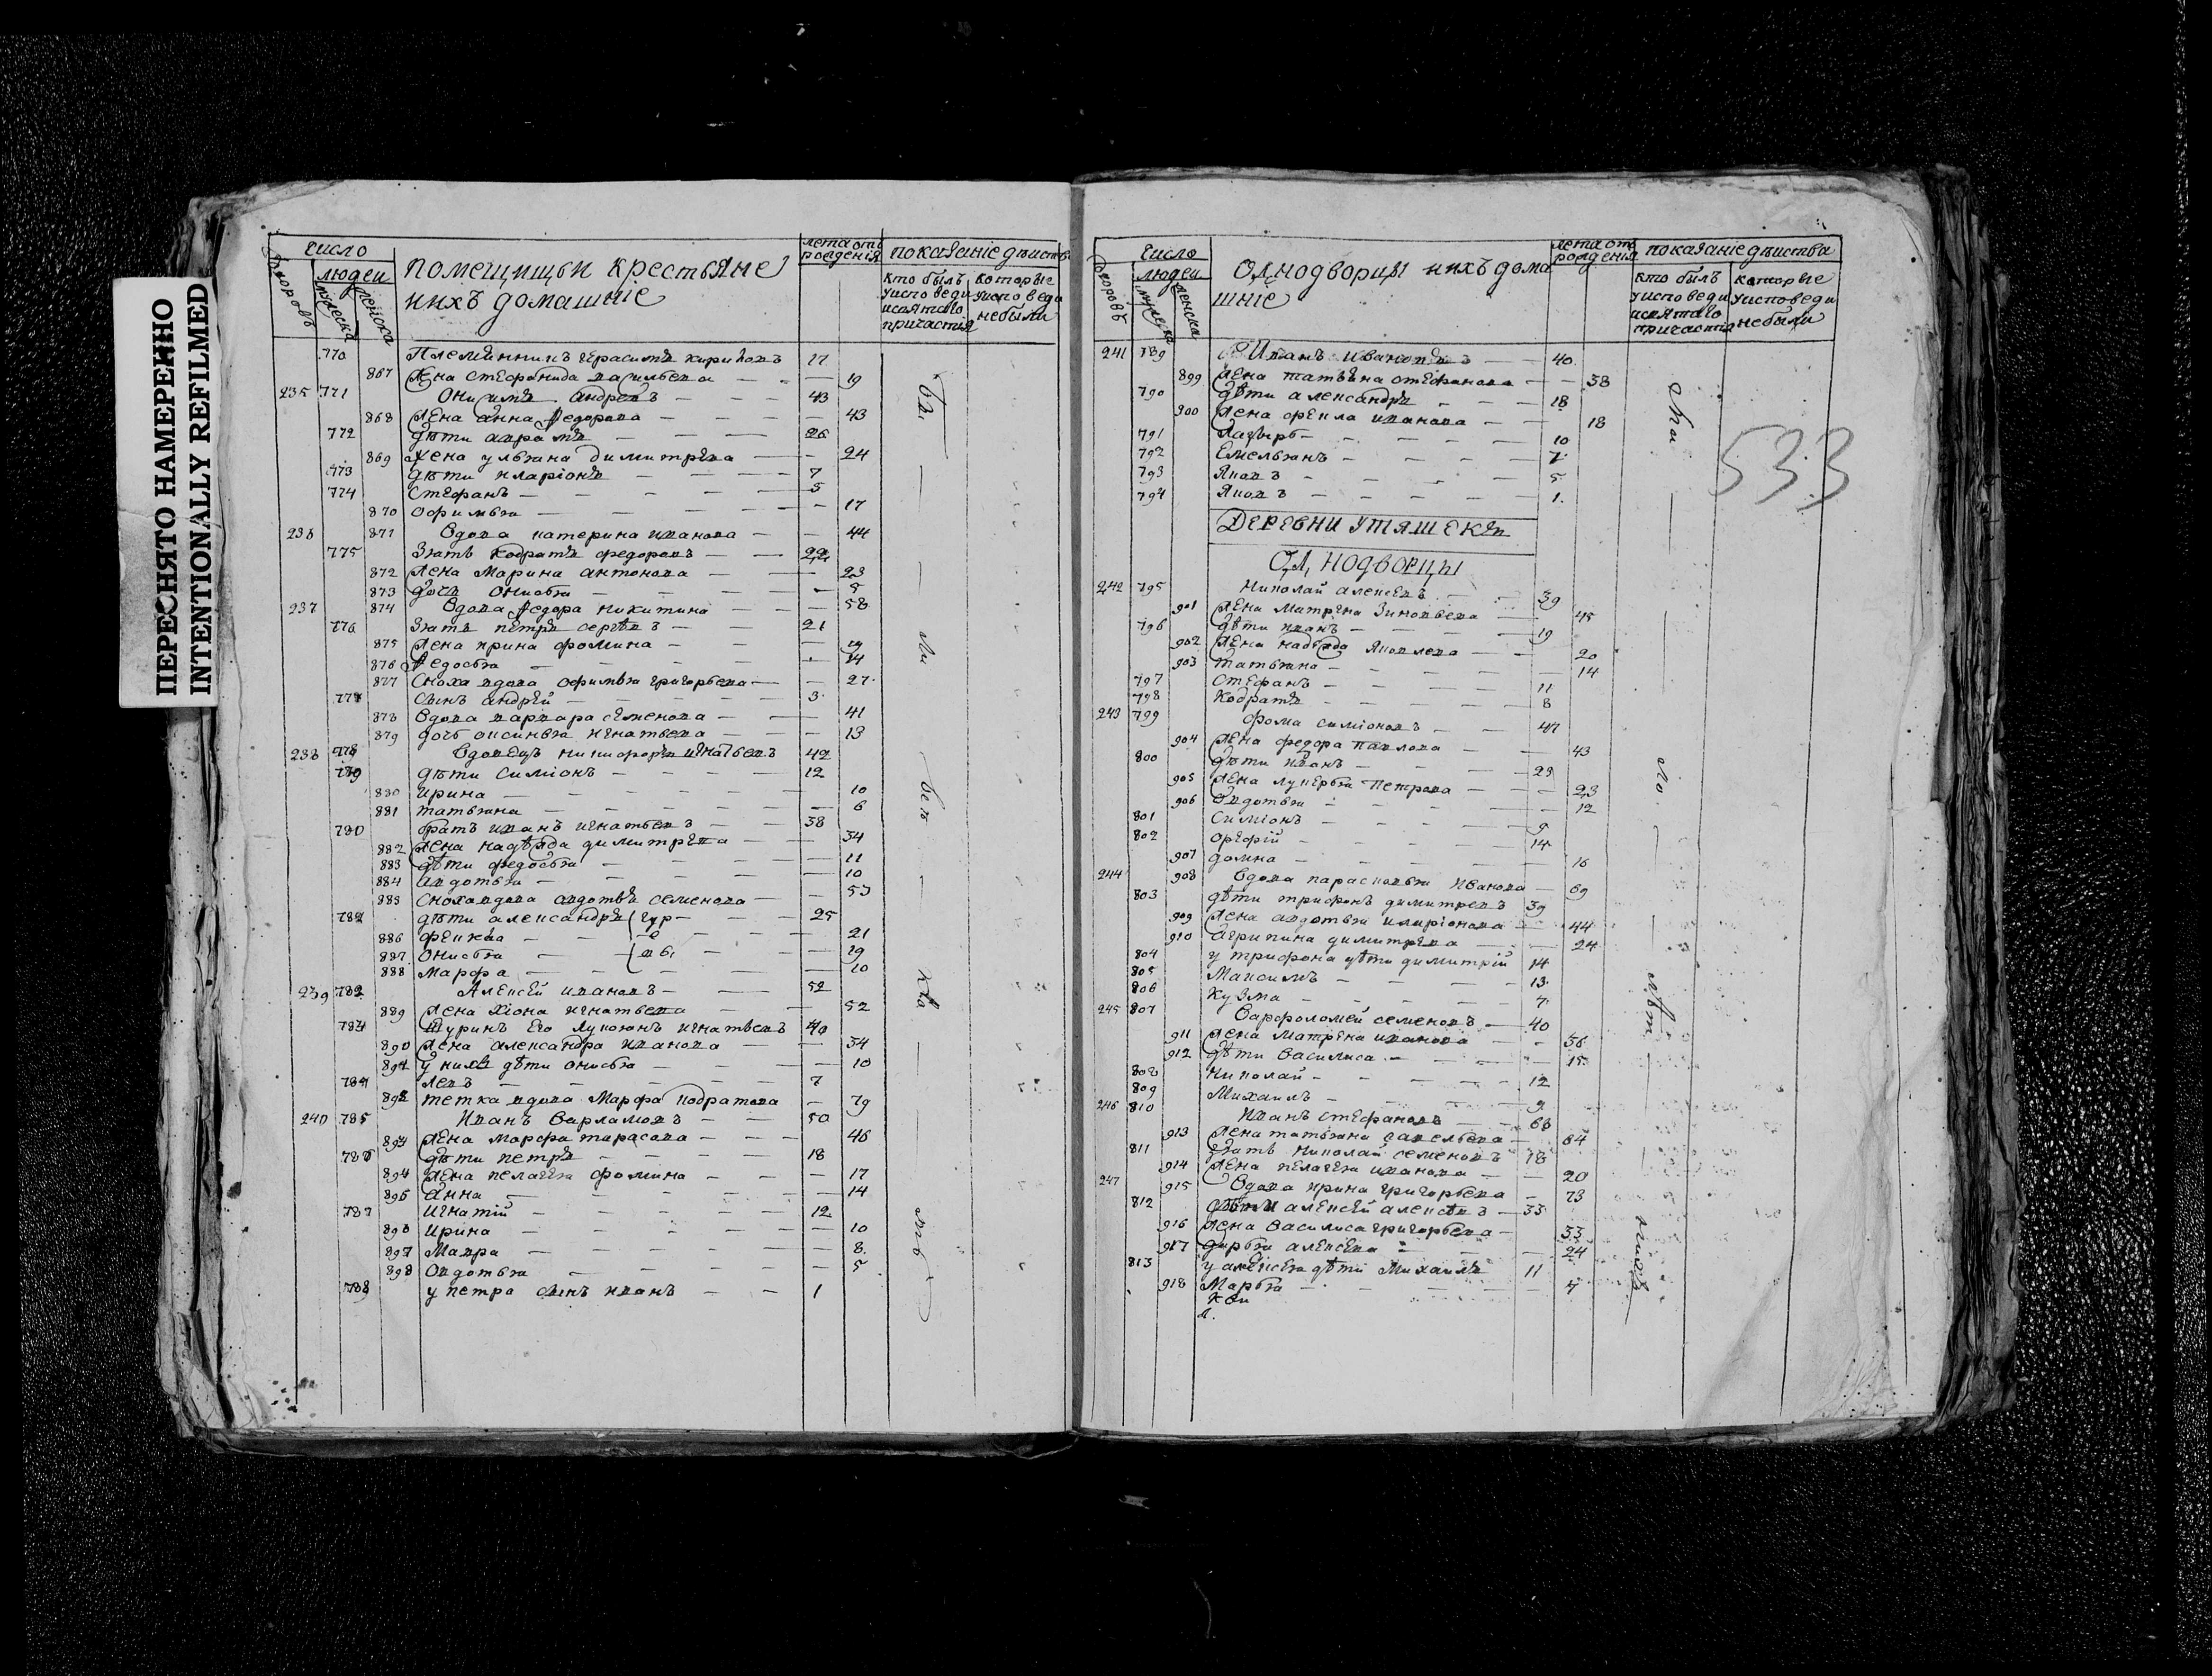 ПЕРЕСНЯТО НАМЕРЕННО
INTENTIONALLY REFILMED
число
дворовъ
людеи
мужеска
женска
помещицьи крестьяне
ихъ домашніе
лета отъ рожденія
показаніе дѣиства
кто былъ у исповеди и святаго причастія
которые у исповеди небыли
770 Племянникъ герасимъ 17
867 жена стефанида васильева — 19
235 771 Онисимъ андреевъ — 43
868 жена анна федорова — 43
772 дѣти авраамъ — 26
869 жена ульяна димитрева — 24
773 дѣти иларіонъ — 7
774 стефанъ — 5
870 офимья — 17
236 871 вдова катерина иванова — 44
775 зять кодратъ федоровъ — 22
872 жена марина антонова — 23
873 дочь онисья — 5
237 874 вдова федора никитина — 58
776 зять петръ сергѣевъ — 21
875 жена ирина фомина — 19
876 федосья — 14
877 сноха вдова офимья григорьева — 27
777 сынъ андрей — 3
878 вдова варвара семенова — 41
879 дочь аксинья игнатьева — 13
238 778 вдовецъ никифоръ игнатьевъ 42
779 дѣти симіонъ — 12
880 ирина — 10
881 татьяна — 6
780 братъ иванъ игнатьевъ — 38
882 жена надѣжда димитрева — 34
883 дѣти федосья — 11
884 авдотья — 10
885 сноха вдова авдотья семенова — 53
782 дѣти александръ — 25
886 фекла — 21
887 онисья — 19
888 марфа — 10
239 782 Алексей ивановъ — 52
889 жена хіона игнатьева — 52
784 шуринъ его лукоянъ игнатьевъ 40
890 жена александра иванова — 34
891 у нихъ дѣти онисья — 10
784 левъ — 7
892 тетка вдова марфа кодратова — 79
240 785 Иванъ варламовъ — 50
893 жена марфа тарасова — 46
786 дѣти петръ — 18
894 жена пелагея фомина — 17
895 анна — 14
787 игнатій — 12
896 ирина — 10
897 мавра — 8
898 овдотья — 5
788 у петра сынъ иванъ — 1
число
дворовъ
людеи
женска
однодворцы ихъ дома
шніе
лета отъ рожденія
показаніе дѣиства
кто былъ у исповеди и святаго причастія
которые у исповеди небыли
533
241 789 Иванъ ивановъ — 40
899 жена татьяна стефанова — 38
790 дѣти александръ — 18
900 жена фекла иванова — 18
791 лазырь — 10
792 Емельянъ — 7
793 Яковъ — 5
794 Яковъ — 1
Деревни утяшекъ
однодворцы
242 795 Николай алексеевъ — 39
901 жена матрена зиновьева — 45
796 дѣти иванъ — 19
902 жена надежда яковлева — 20
903 татьяна — 14
797 стефанъ — 11
798 кодратъ — 8
243 799 фома симіоновъ — 47
904 жена федора павлова — 43
800 дѣти иванъ — 23
905 жена лукерья петрова — 23
906 авдотья — 12
801 симіонъ — 9
802 орефій — 14
907 домна — 16
244 908 вдова парасковья иванова — 69
803 дѣти трифонъ димитревъ 39
909 жена авдотья иларіонова — 44
910 агрипина димитрева — 24
804 у трифона дѣти димитрій 14
805 максимъ — 13
806 кузма — 7
245 807 варфоломей семеновъ — 40
911 жена матрена иванова — 36
912 дѣти василиса — 15
808 николай — 12
809 михаилъ — 9
246 810 Иванъ стефановъ — 68
913 жена татьяна савельева — 64
811 зять николай семеновъ 18
914 жена пелагея иванова — 20
247 915 вдова ирина григорьева — 73
812 дѣти алексей алексеевъ — 33
916 жена василиса григорьева — 33
917 дарья алексева — 24
813 у алексея дѣти михаилъ 11
918 марья — 4